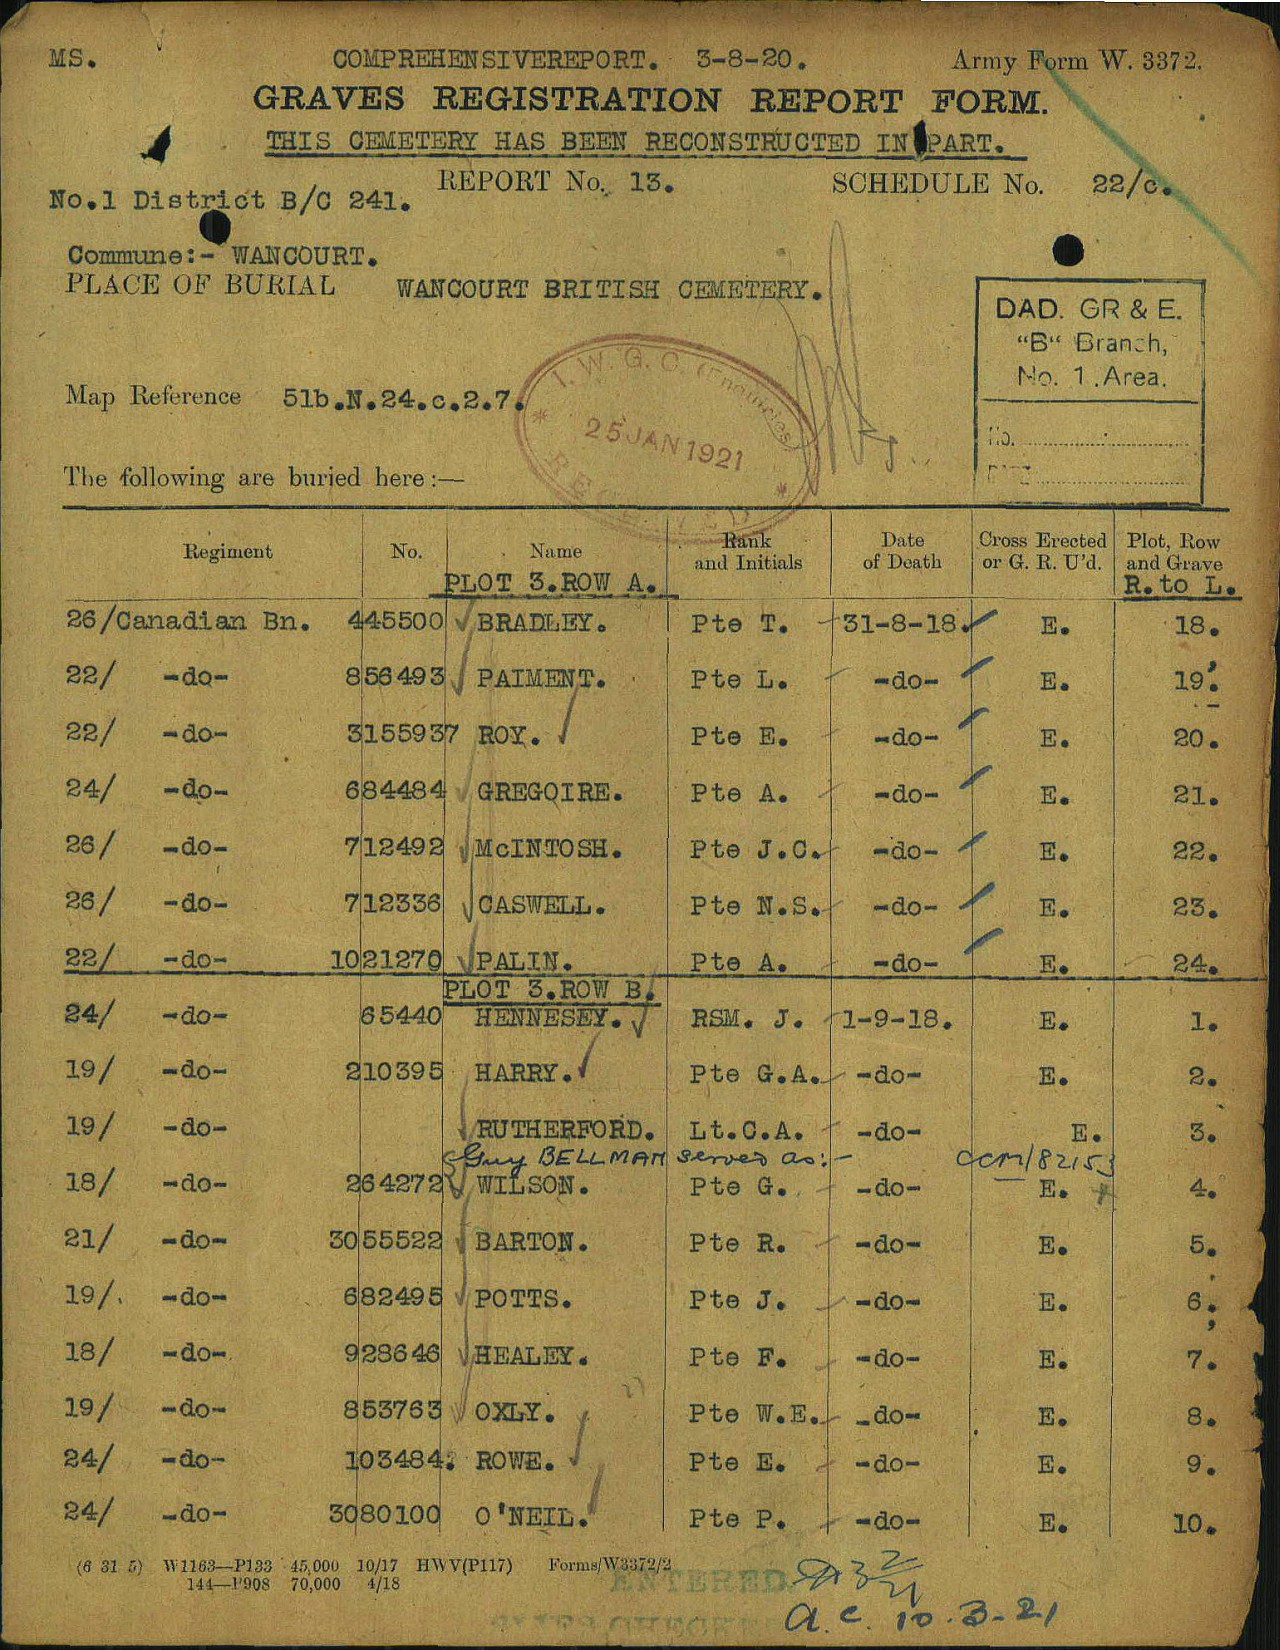 MS. COMPREHENSIVEREPORT. 3-8-20. Army Form W. 3372.
GRAVES REGISTRATION REPORT FORM.
THIS CEMETERY HAS BEEN RECONSTRUCTED IN PART.
REPORT No. 13. SCHEDULE No. 22/c.
No.1 District B/C 241.
Commune:- WANCOURT.
PLACE OF BURIAL WANCOURT BRITISH CEMETERY.
DAD. GR & E.
"B" Branch,
No. 1. Area.
No.
I. W. G. C. (Enquiries)
25 JAN 1921
RECEIVED
Map Reference 51b.N.24.c.2.7.
The following are buried here:—
Regiment No. Name Rank and Initials Date of Death Cross Erected or G. R. U'd. Plot, Row and Grave
PLOT 3.ROW A. R. to L.
26/Canadian Bn. 445500 BRADLEY. Pte T. 31-8-18. E. 18.
22/ -do- 856493 PAIMENT. Pte L. -do- E. 19.
22/ -do- 3155937 ROY. Pte E. -do- E. 20.
24/ -do- 684484 GREGOIRE. Pte A. -do- E. 21.
26/ -do- 712492 McINTOSH. Pte J.C. -do- E. 22.
26/ -do- 712336 CASWELL. Pte N.S. -do- E. 23.
22/ -do- 1021270 PALIN. Pte A. -do- E. 24.
PLOT 3.ROW B.
24/ -do- 65440 HENNESEY. RSM. J. 1-9-18. E. 1.
19/ -do- 210395 HARRY. Pte G.A. -do- E. 2.
19/ -do- RUTHERFORD. Lt.C.A. -do- E. 3.
Guy BELLMAN served as:- ccm/82153
18/ -do- 264272 WILSON. Pte G. -do- E. 4.
21/ -do- 3055522 BARTON. Pte R. -do- E. 5.
19/. -do- 682495 POTTS. Pte J. -do- E. 6.
18/ -do- 928646 HEALEY. Pte F. -do- E. 7.
19/ -do- 853763 OXLY. Pte W.E. -do- E. 8.
24/ -do- 103484. ROWE. Pte E. -do- E. 9.
24/ -do- 3080100 O'NEIL. Pte P. -do- E. 10.
(6 31 5) W1163—P133 45,000 10/17 HWV(P117) Forms/W3372/2
144—P908 70,000 4/18
ENTERED
a.c. 10.3.21